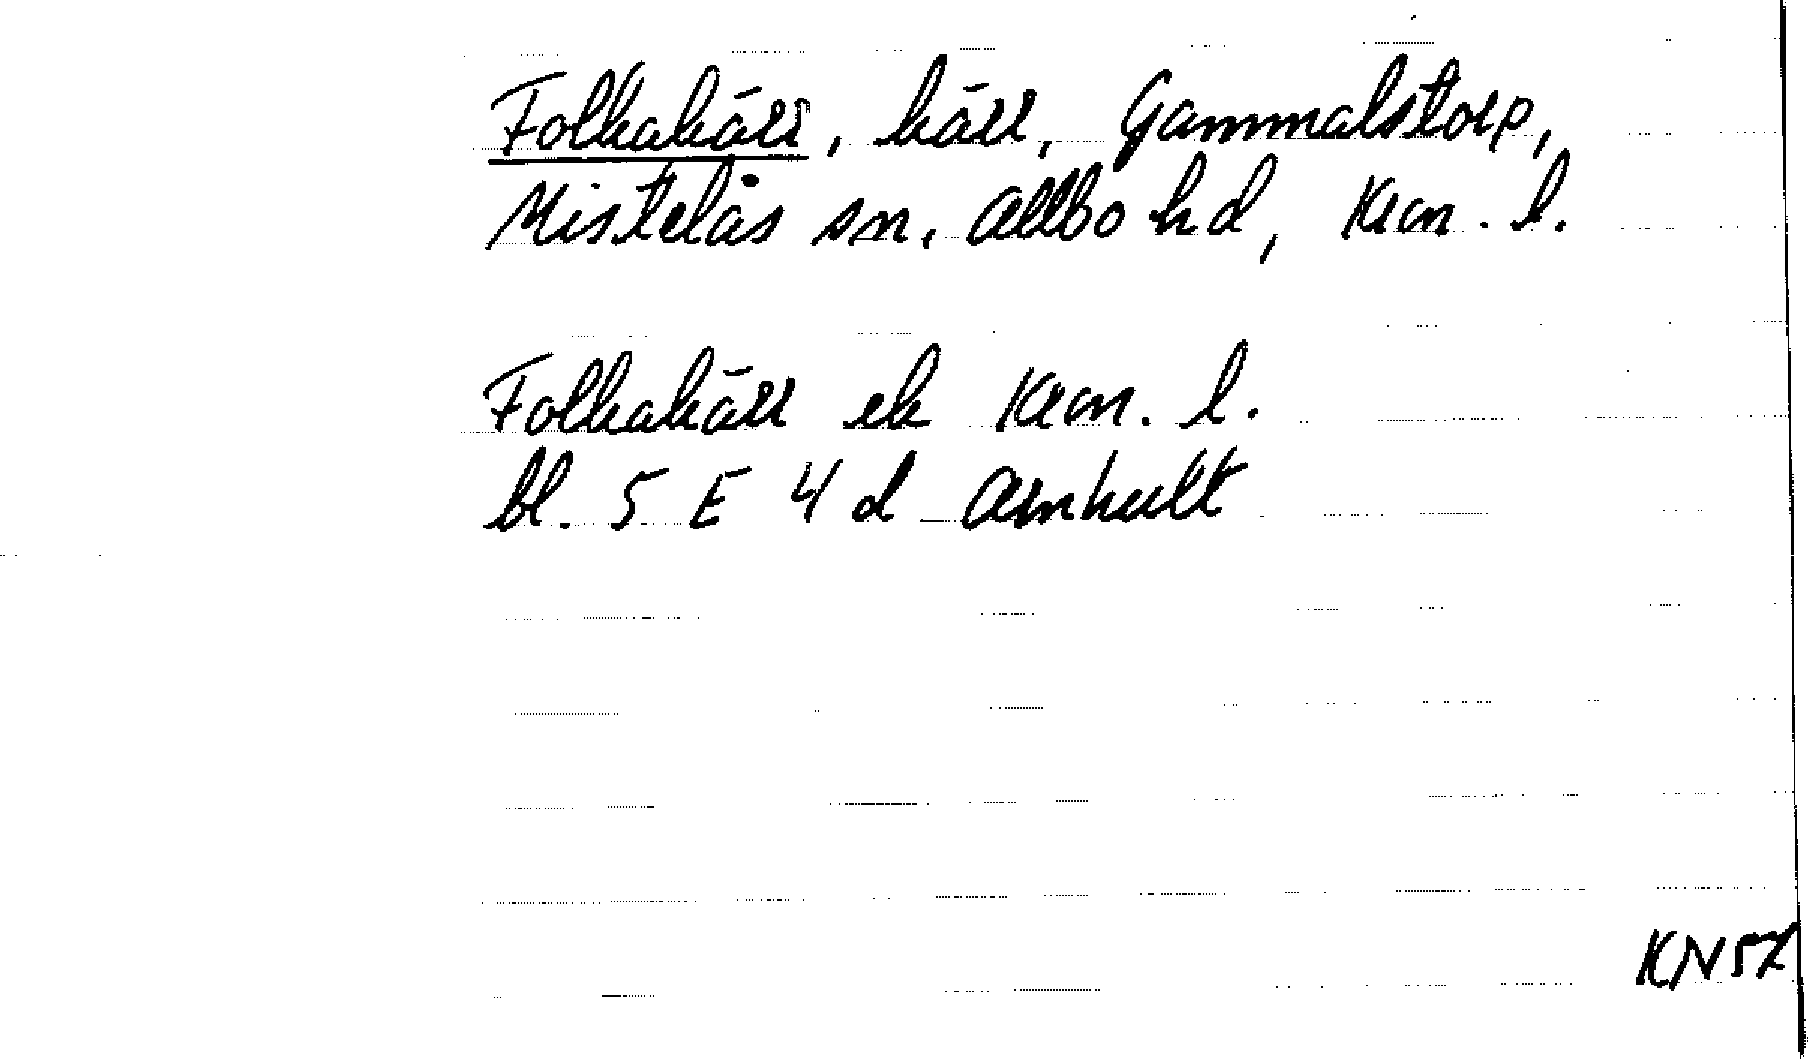 Folkakärr, kärr, Gammalstorp,
Mistelås sn, Allbo hd, Kron. l.
Folkakärr ek Kron. l.
bl. 5 E 4 d Amhult
KN57